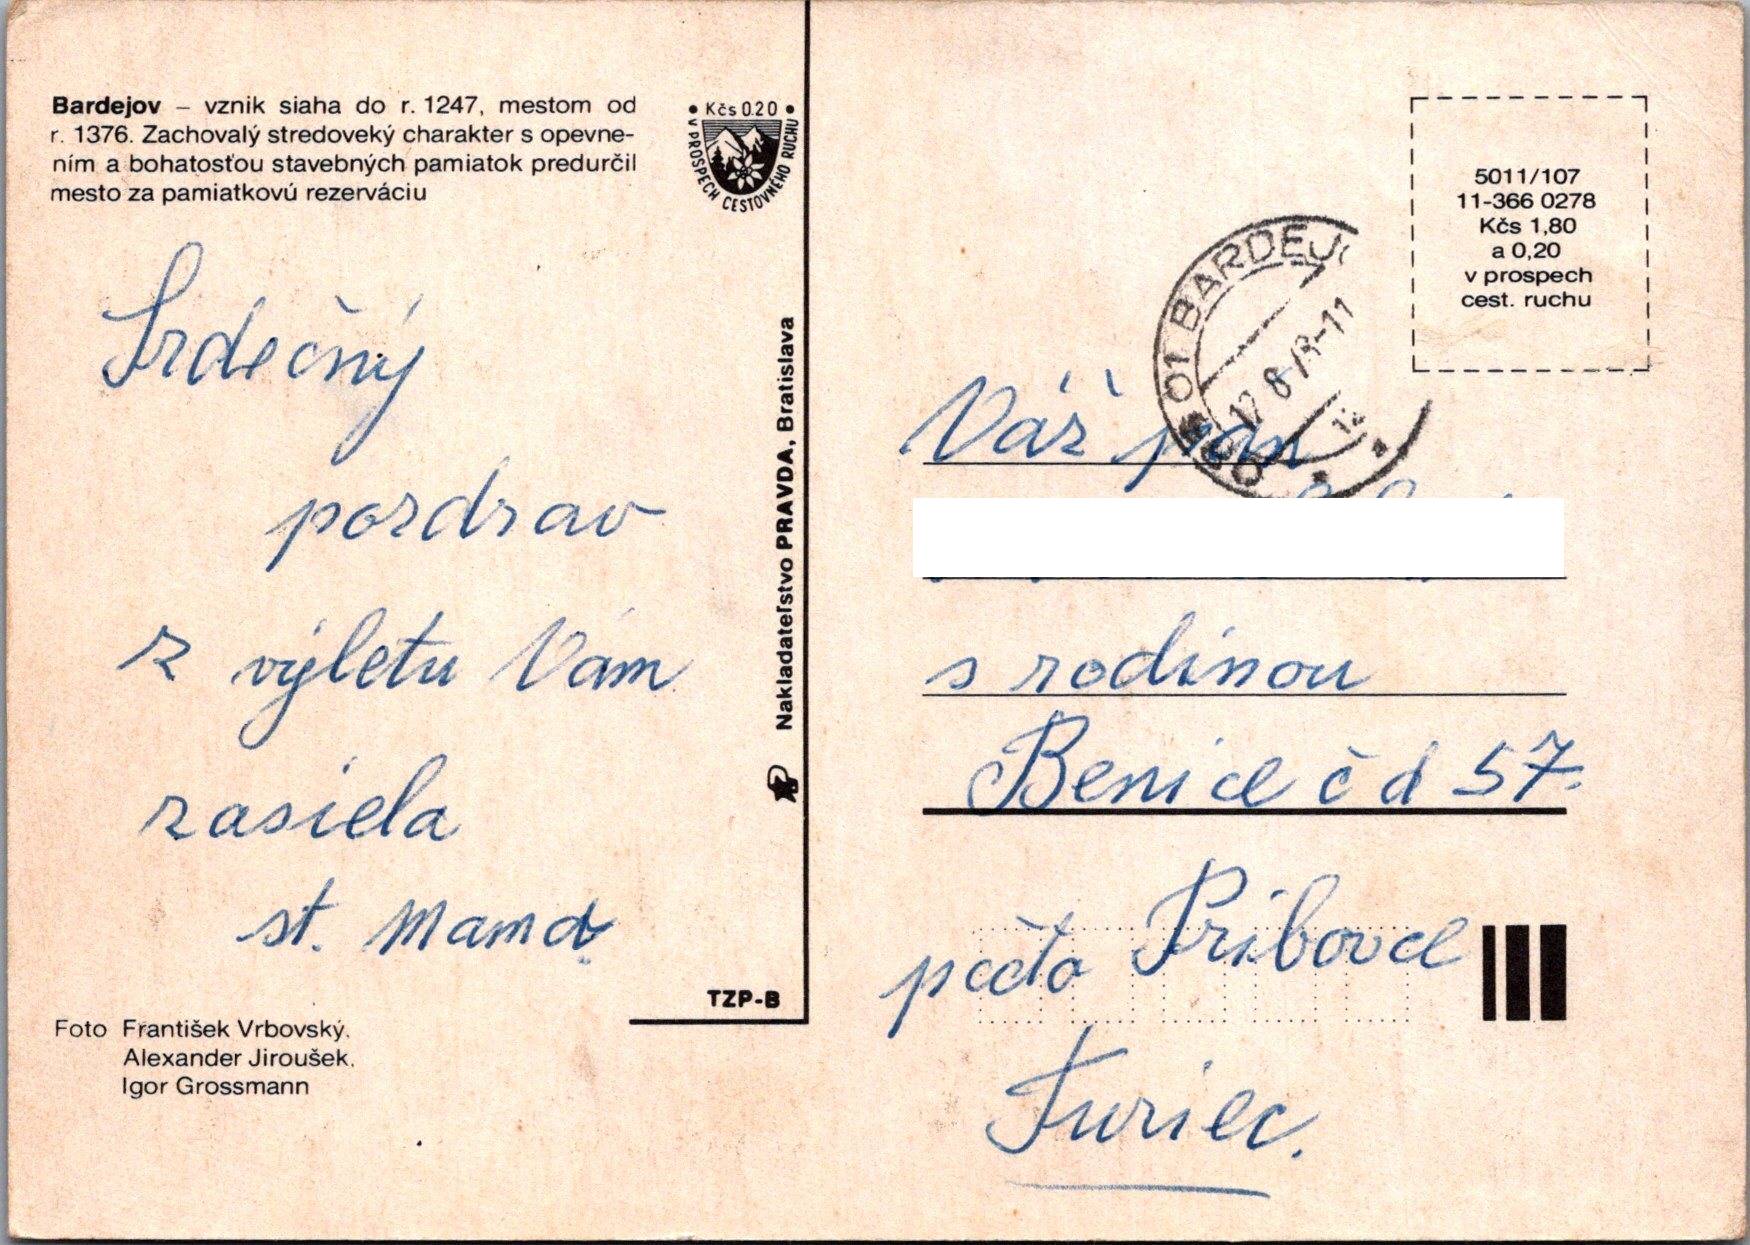 Bardejov – vznik siaha do r. 1247, mestom od
r. 1376. Zachovalý stredoveký charakter s opevne-
ním a bohatosťou stavebných pamiatok predurčil
mesto za pamiatkovú rezerváciu
• Kčs 0.20 •
V PROSPECH CESTOVNÉHO RUCHU
Srdečný
pozdrav
z výletu Vám
zasiela
st. Mama
Foto František Vrbovský.
Alexander Jiroušek.
Igor Grossmann
TZP-B
Nakladateľstvo PRAVDA, Bratislava
5011/107
11-366 0278
Kčs 1,80
a 0,20
v prospech
cest. ruchu
01 BARDEJO
Váž pán
s rodinou
Benice č d 57.
pošta Príbovce
Turiec.